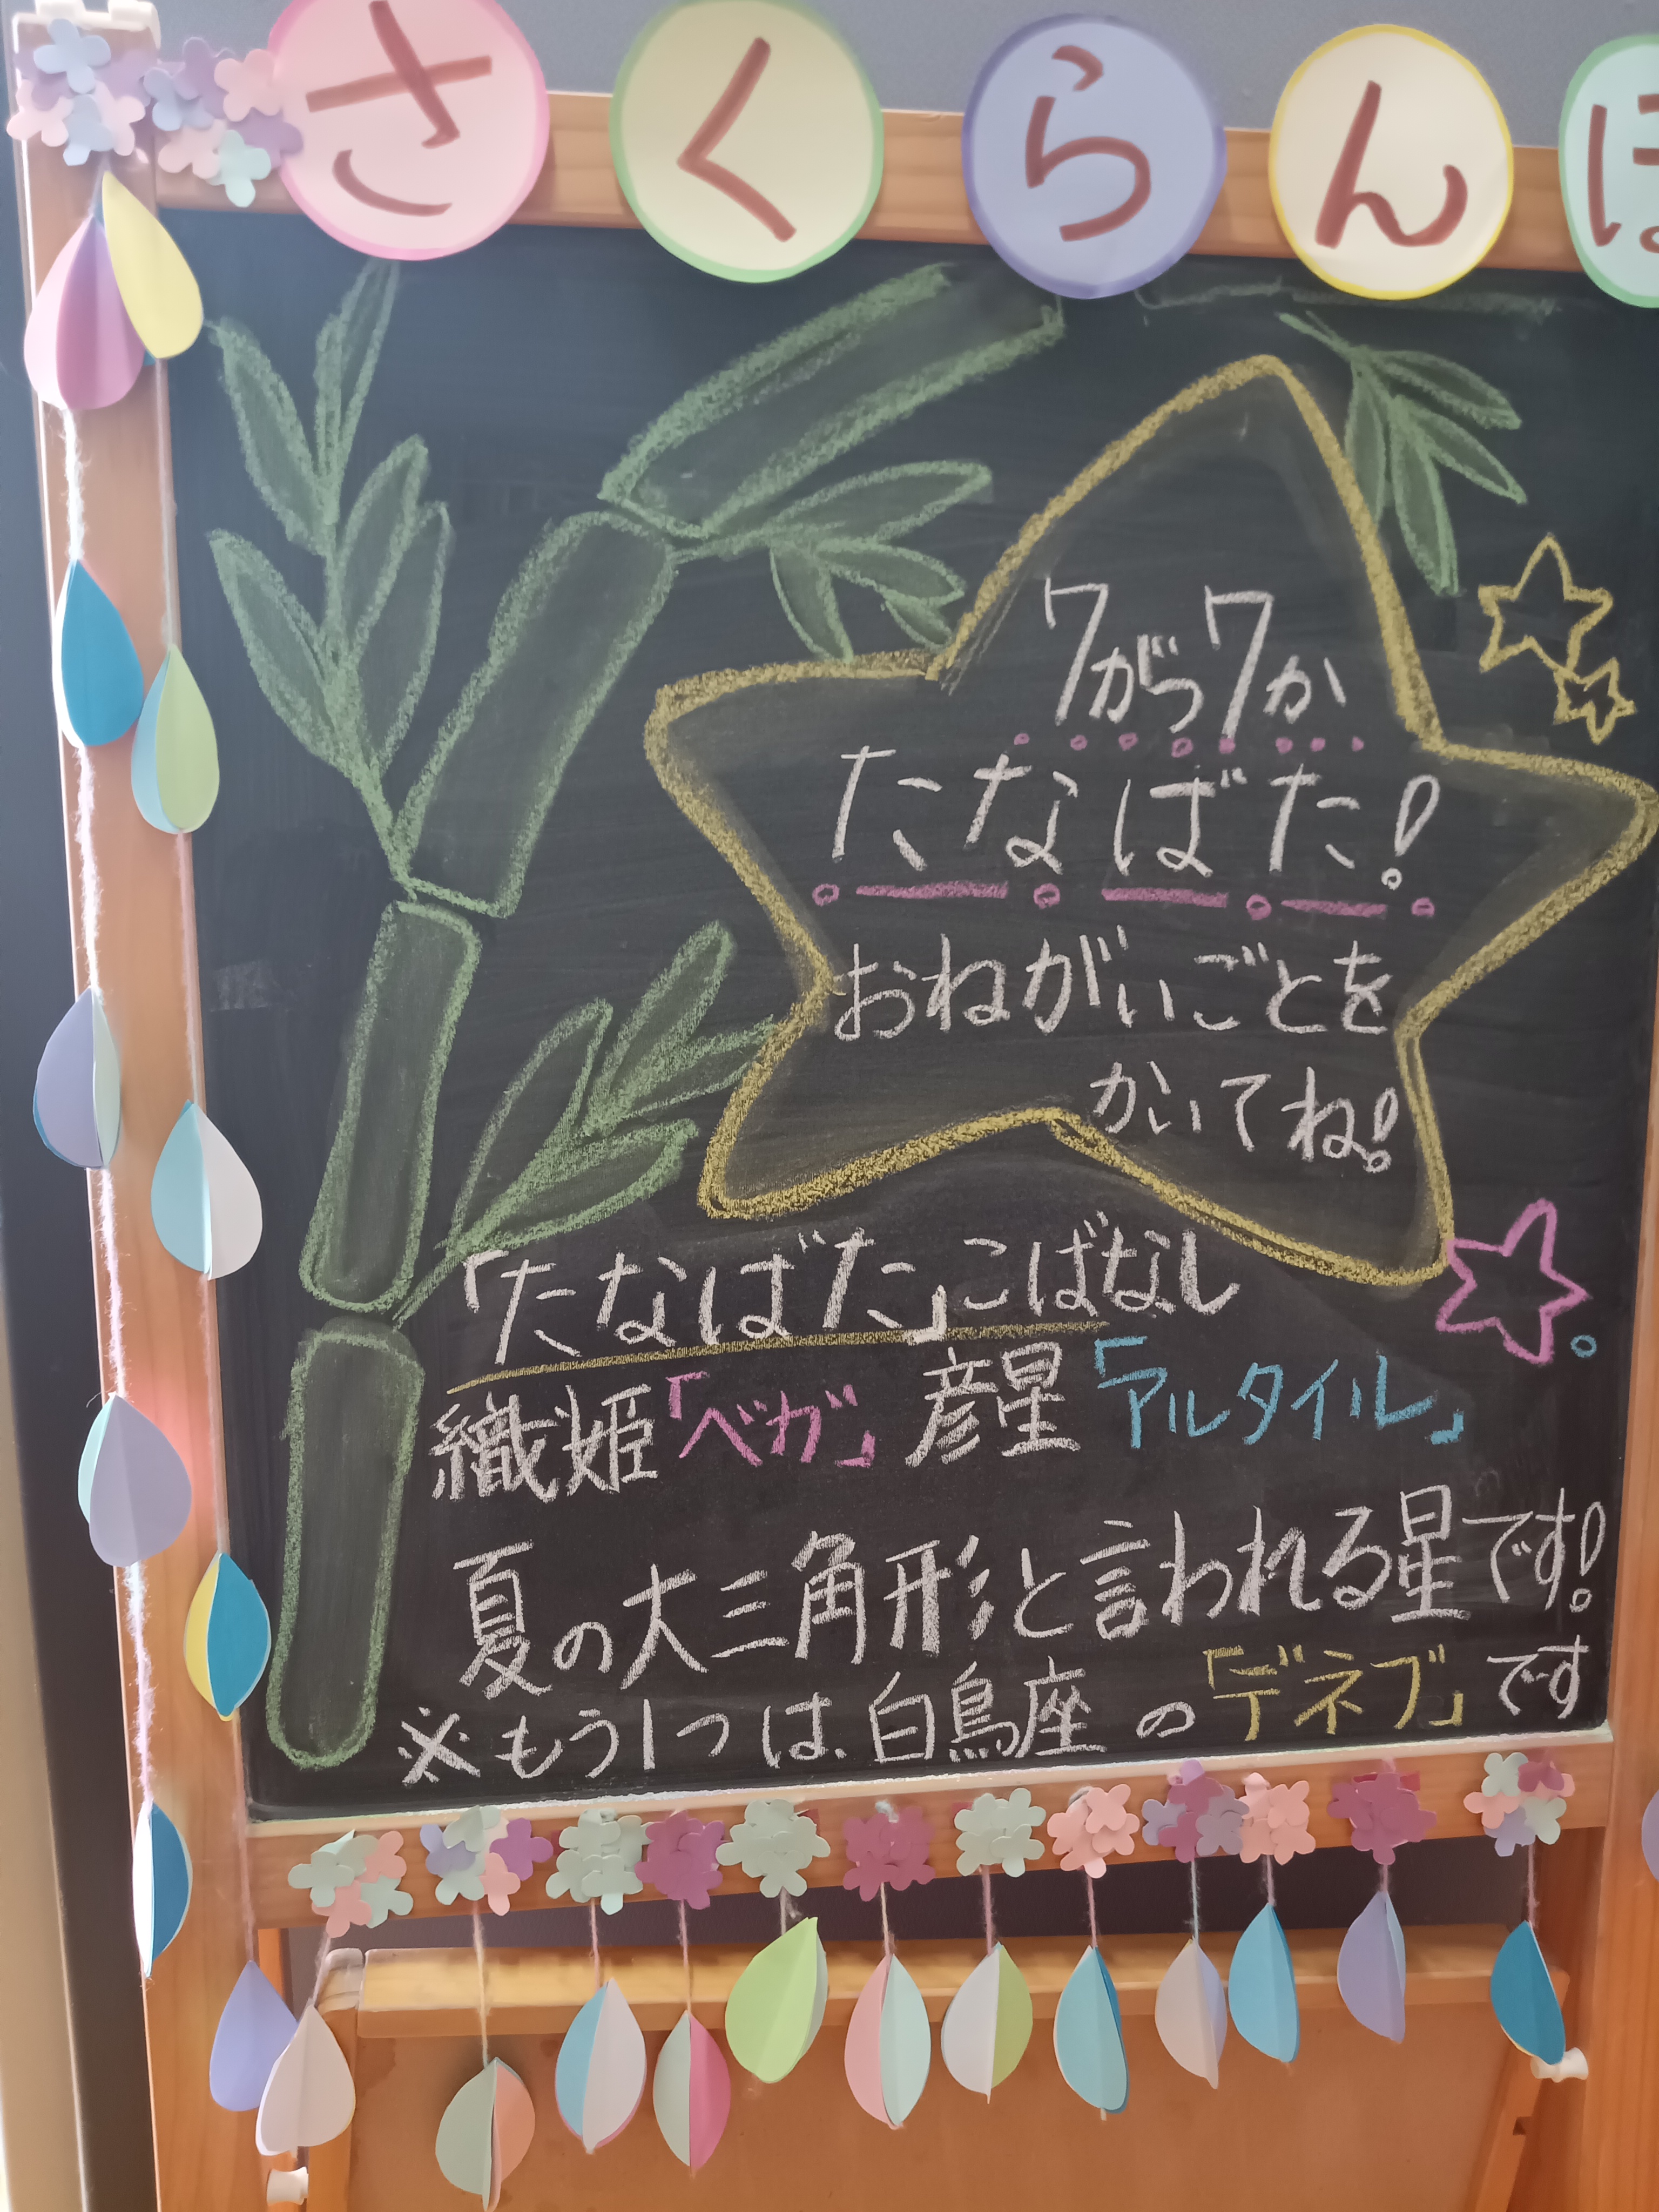 さくらんぼ
7がつ7か
たなばた!
おねがいごとを
かいてね!
「たなばた」こばなし
織姫「ベガ」彦星「アルタイル」
夏の大三角形と言われる星です!
※もう1つは、白鳥座の「デネブ」です